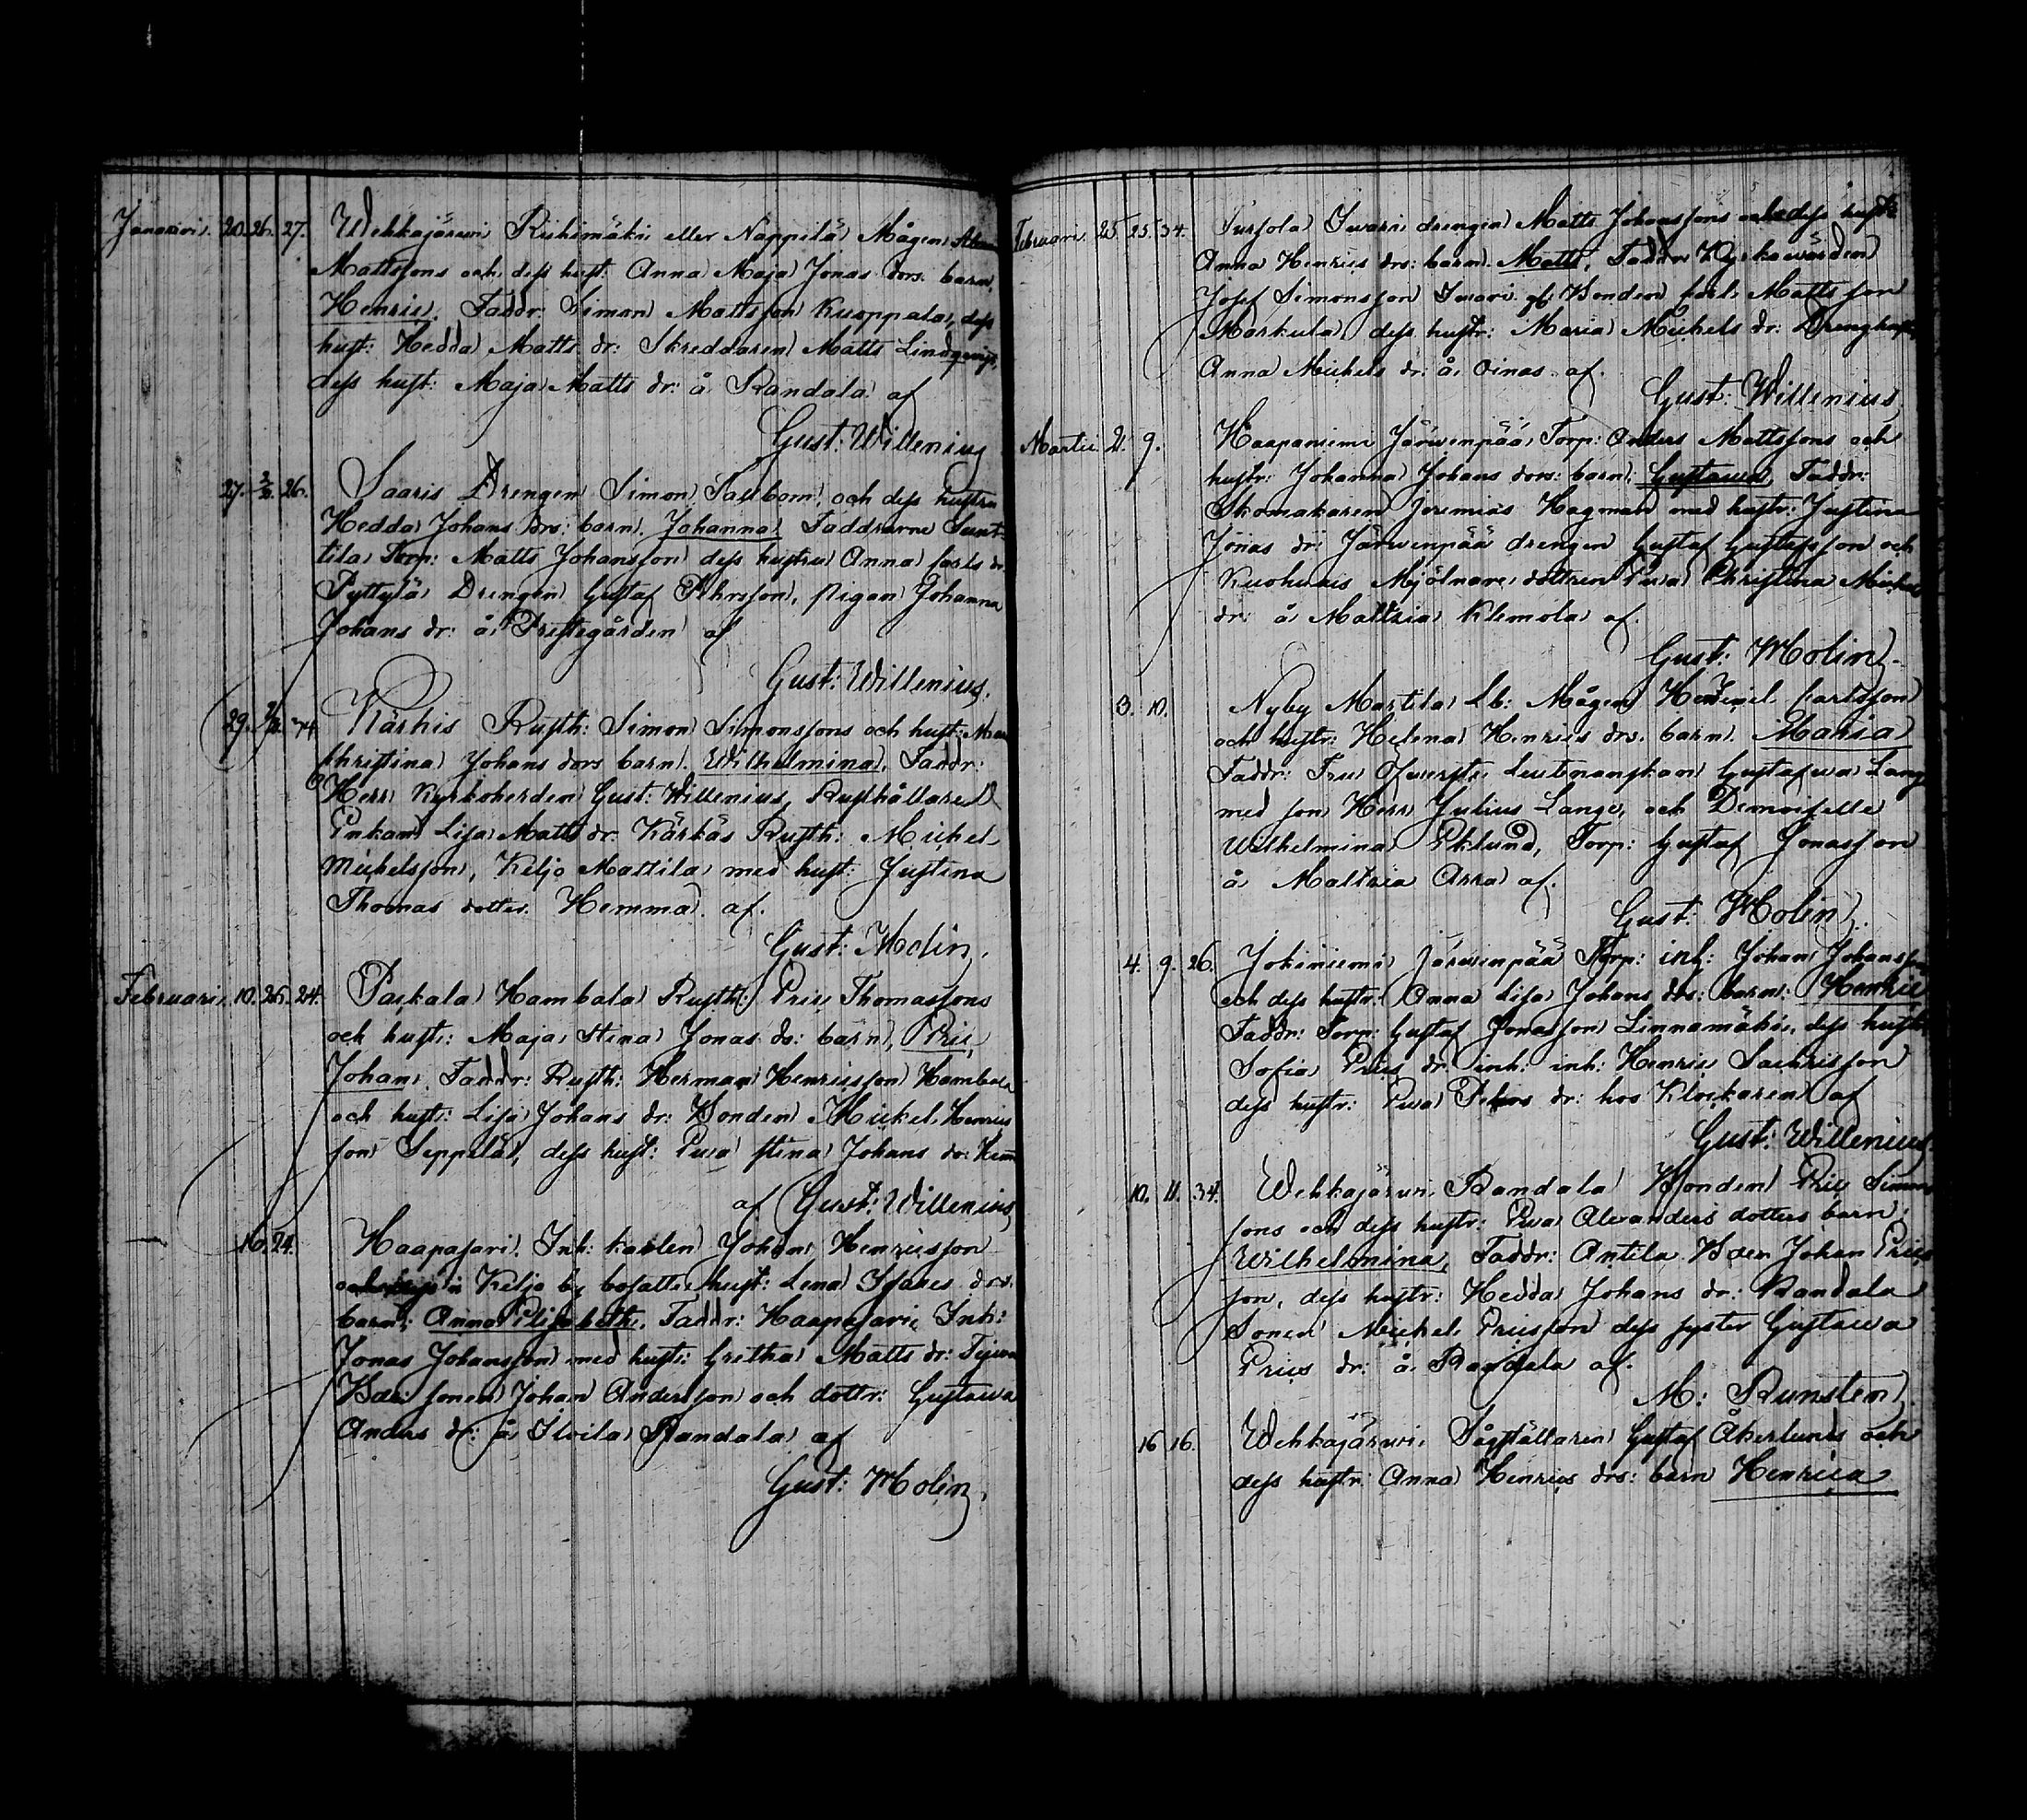 Januarii. 20. 26. 27. Wehkajärwi Riihimäki eller Nappilä Mågen
Mattssons och dess hust: Anna Maja Jonas dors. barn,
Henric. Faddr: Simon Mattsson Kuoppala, dess
hust: Hedda Matts dr: Skreddaren Matts Lindqvist,
dess hust: Maja Matts dr: å Randala af
Gust: Willenius
27. 2/2. 26. Saaris Drengen Simon och dess hustru
Hedda Johans drs: barn. Johanna Faddrarne Sunt-
tila Torp: Matts Johansson dess hustru Anna Carls dr.
Pyttylä Drengen Gustaf Pehrsson, pigan Johanna
Johans dr: å Prestegården af
Gust: Willenius.
29. 34 Kärkis Rusth: Simon Simonssons och hust: Maja
Christina Johans dors barn. Wilhelmina, Faddr:
Herr Kyrkoherden Gust: Willenius, Rusthållare
Enkan Lisa Matts dr. Kärkäs Rusth: Michel
Michelsson, Keljo Mattila med hust: Justina
Thomas dotter Hemma. af.
Gust: Molin.
Februarii. 10. 25. 24. Paskala Hambala Rusth: Eric Thomassons
och hust: Maja Stena Jonas ds: barn, Eric
Johan, Faddr: Rusth: Herman Henricsson Hambala
och hust: Lisa Johans dr: Bonden Mickel Henrics
son Seppelä, dess hust: Ewa Stina Johans dr:
af Gust: Willenius
16. 24. Haapasari Inh: karlen Johan Henricsson
i Keljo by bosatte hust: Lena Isaks drs:
barn; Anna Elisabeth, Faddr: Haapasari Inh:
Jonas Johansson med hust: Gretha Matts dr:
Bde: sonen Johan Andersson och dottr: Gustawa
Anders dr: å Ilvila Randala af
Gust: Molin.
Februarii. 25. 25. 34. Tursola Iwari drengen Matts Johanssons och dess hustr:
Anna Henrics drs: barn. Matts, Faddr: Kyrkowärden
Josef Simonsson Iwari, gl: Bonden Carl Mattsson
Markula, dess hustr: Maria Michels dr: Drenghust:
Anna Michels dr: å Oinas af.
Gust: Willenius
Martii. 2. 9. Haapaniemi Järwenpää Torp: Anders Mattssons och
hustr: Johanna Johans dors: barn: Gustawa, Faddr:
Skomakaren Jeremias Hagman med hustr: Justina
Jonas dr: Järwenpää drengen Gustaf Gustafsson och
Kuohuais Mjölnare dottren Ewa Christina Michels
dr: å Maltzia Klemola af.
Gust: Molin.
3. 10. Nyby Martila Lb: Mågen Carlsson
och hustr: Helena Henrics drs. barn. Maria
Faddr: Fru Öfwerste Leutenanskan Gustafwa Lange
med son Herr Julius Lange, och Demoiselle
Wilhelmina Eklund, Torp: Gustaf Jonasson
å Maltzia Arra af.
Gust: Molin.
4. 9. 26. Jokiniemi Järwenpää Torp: inh: Johan Johansson
och dess hustr: Anna Lisa Johans drs: barn: Henric
Faddr: Torp: Gustaf Jonasson Linnamäki, dess hustr:
Sofia Erics dr inh: inh: Henric Sachrisson
dess hustr: Ewa Pehrs dr: hos Klockaren af
Gust: Willenius.
10. 11. 34. Wehkajärwi Randala Bonden Eric Simons
sons och dess hustr: Ewa Alexanders dotters barn:
Wilhelmina, Faddr: Antila Bden Johan Erics
son, dess hustr: Hedda Johans dr: Randala
Sonen Michel Ericsson dess syster Gustawa
Erics dr: å Randala af.
M: Runsten.
16 16. Wehkajärwi Sågställaren Gustaf Åkerlunds och
dess hustr: Anna Henrics drs: barn Henrica